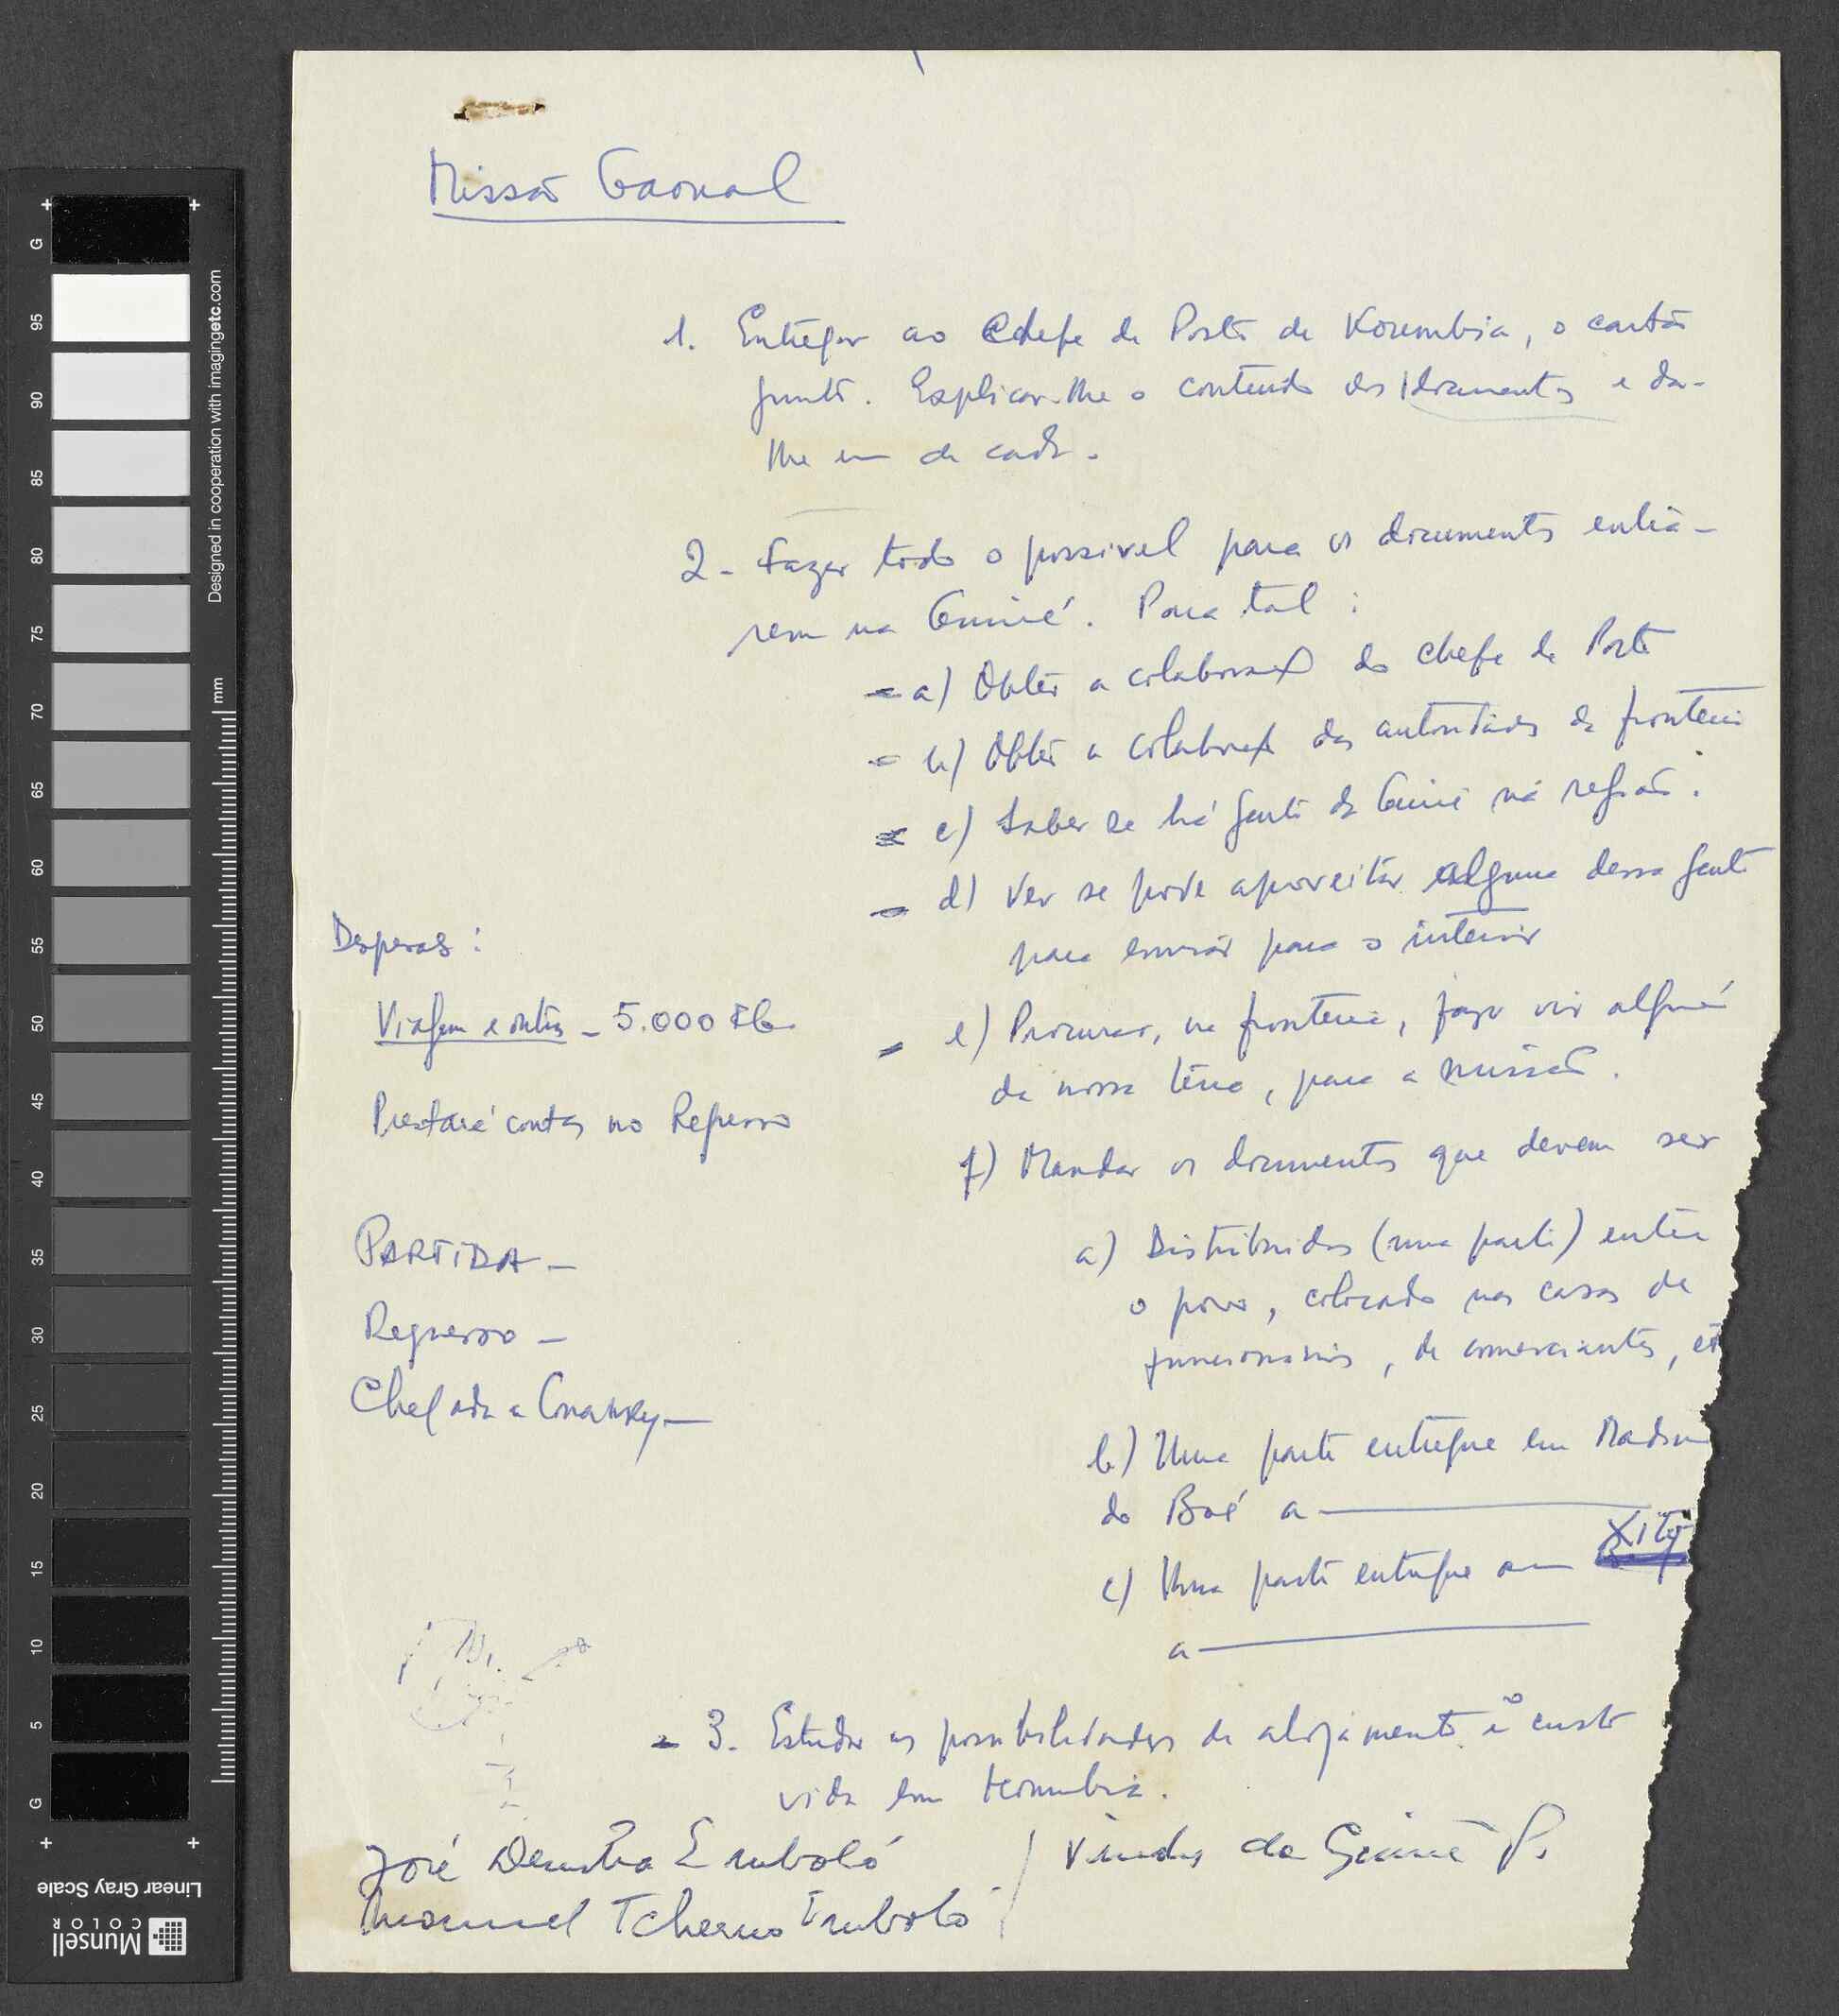 Missão Gaoual
1. Entregar ao Chefe de Posto de Koumbia, o cartão
junto. Explicar-lhe o conteúdo dos documentos e dar-
lhe um de cada.
2- Fazer todo o possível para os documentos entra-
rem na Guiné. Para tal :
- a) Obter a colaboração do chefe de Posto
- b) Obter a colaboração das autoridades da fronteira
- c) Saber se há gente da Guiné na região.
- d) Ver se pode aproveitar alguma dessa gente
para enviar para o interior
- e) Procurar, na fronteira, fazer vir alguém
da nossa terra, para a missão.
f) Mandar os documentos que devem ser
a) Distribuidos (uma parte) entre
o povo, colocado nas casas de
funcionários, de comerciantes, et
b) Uma parte entregue em Madin
do Boé a
c) Uma parte entregue em Xity
a
- 3. Estudar as possibilidades de alojamento e o custo
vida em Koumbia.
Despesas :
Viagem e outros - 5.000
Prestará contas no Regresso
PARTIDA -
Regresso -
Chegada a Conakry -
José Demba Embaló
Manuel Tcherno Embaló / Vindos da Guiné P.
G
95
90
85
80
75
70
65
60
55
50
45
40
35
30
25
20
15
10
5
G
mm
Designed in cooperation with imagingetc.com
Linear Gray Scale
Munsell
COLOR